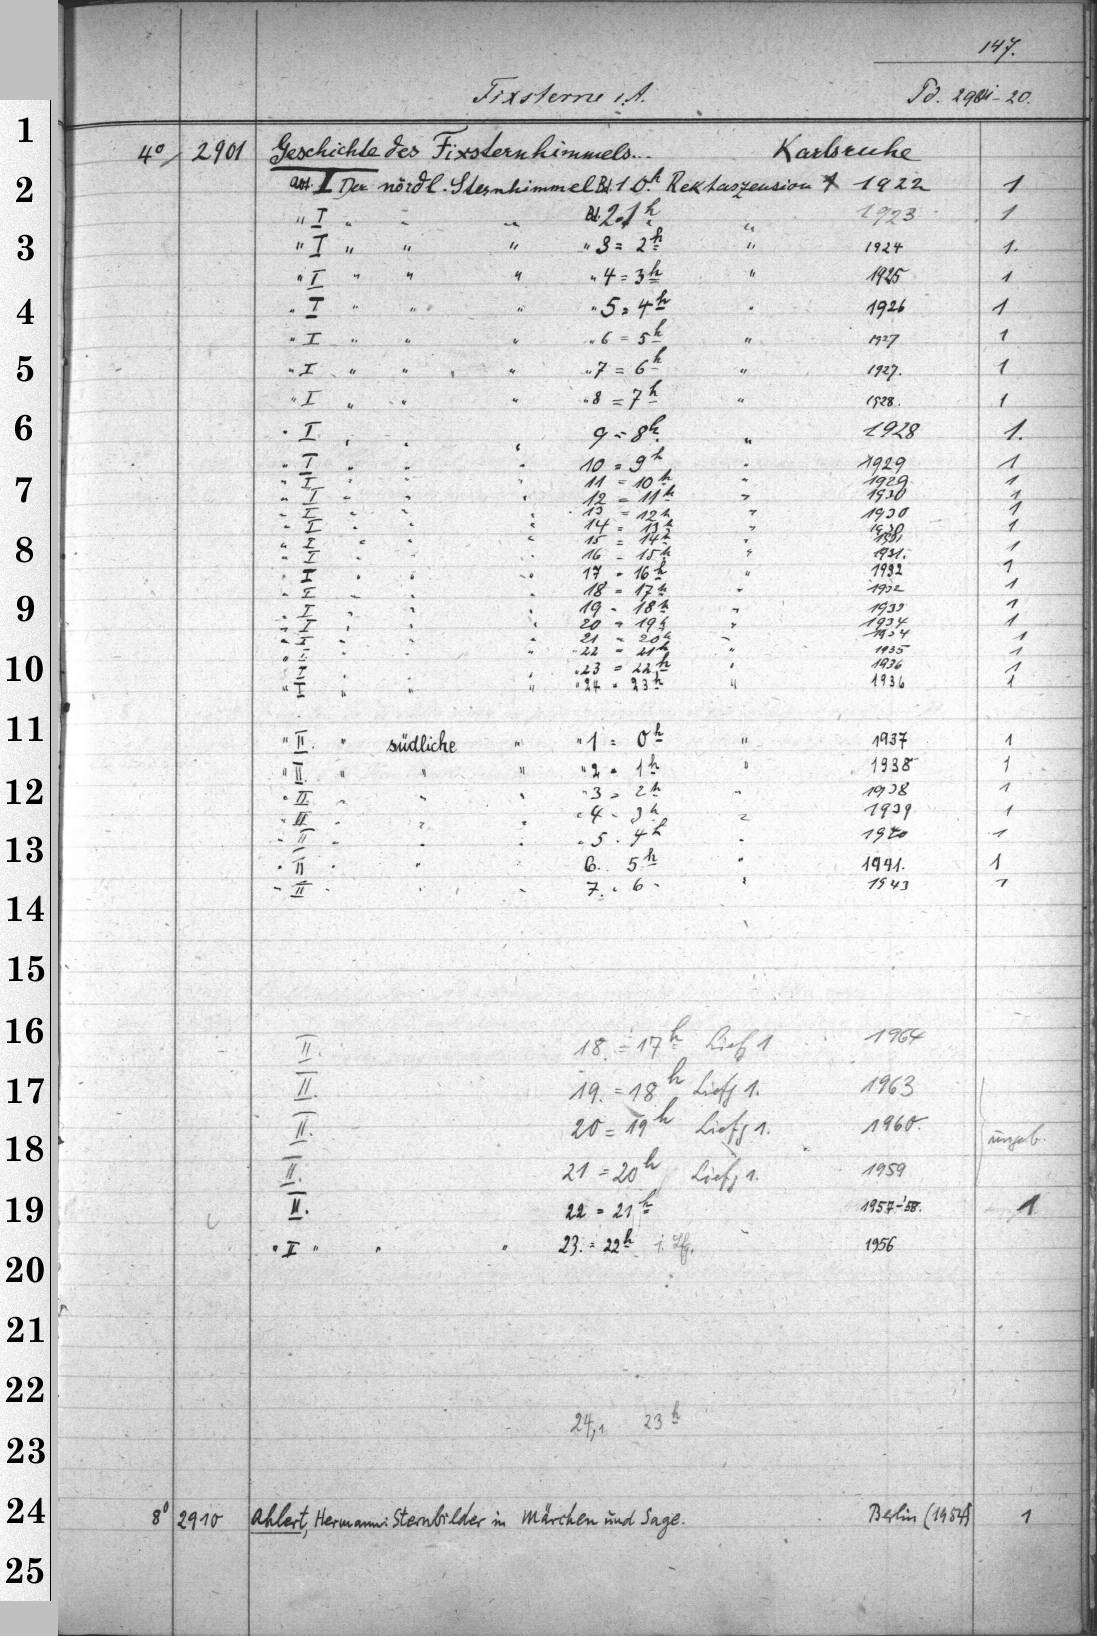 147.
Fixsterne i. A. Td. 2901-20.
1
4° 2901 Geschichte des Fixsternhimmels... Karlsruhe
2
Abt. I Der nördl. Sternhimmel Bd. 1 0h Rektaszension 1922 1
" I " " " Bd. 2. 1h " 1923 1
3
" I " " " " 3 = 2h " 1924 1.
" I " " " " 4 = 3h " 1925 1
4
" I " " " " 5 = 4h " 1926 1
" I " " " " 6 = 5h " 1927 1
5
" I " " " " 7 = 6h " 1927. 1
" I " " " " 8 = 7h " 1928. 1
6
" I " " " 9 = 8h " 1928 1.
" I " " " 10 = 9h " 1929 1
7
" I " " " 11 = 10h " 1929 1
" I " " " 12 = 11h " 1930 1
" I " " " 13 = 12h " 1930 1
" I " " " 14 = 13h " 1930 1
8
" I " " " 15 = 14h " 1931
" I " " " 16 = 15h " 1931. 1
" I " " " 17 = 16h " 1932 1
" I " " " 18 = 17h " 1932 1
9
" I " " " 19 = 18h " 1933 1
" I " " " 20 = 19h " 1934 1
" I " " " 21 = 20h " 1934 1
" I " " " 22 = 21h " 1935 1
10
" I " " " " 23 = 22h " 1936 1
" I " " " " 24 = 23h " 1936 1
11
" II. " südliche " " 1 = 0h " 1937 1
" II. " " " " 2 = 1h " 1938 1
12
" II " " " " 3 = 2h " 1938 1
" II " " " " 4 = 3h " 1939 1
" II " " " " 5 = 4h " 1940 1
13
" II " " 6. 5h " 1941. 1
" II " " " 7. = 6 " 1943 1
14
15
16
II. 18. = 17h Liefg 1 1964
17
II. 19. = 18h Liefg 1. 1963
II. 20 = 19h Liefg 1. 1960.
18
ungeb.
II. 21 = 20h Liefg 1. 1959
19
II. 22 = 21h 1957-'58. 1
" II " " " 23. = 22h i. Lfg. 1956
20
21
22
24,1 23h
23
24
8° 2910 Ahlert, Hermann: Sternbilder in Märchen und Sage. Berlin (1954) 1
25